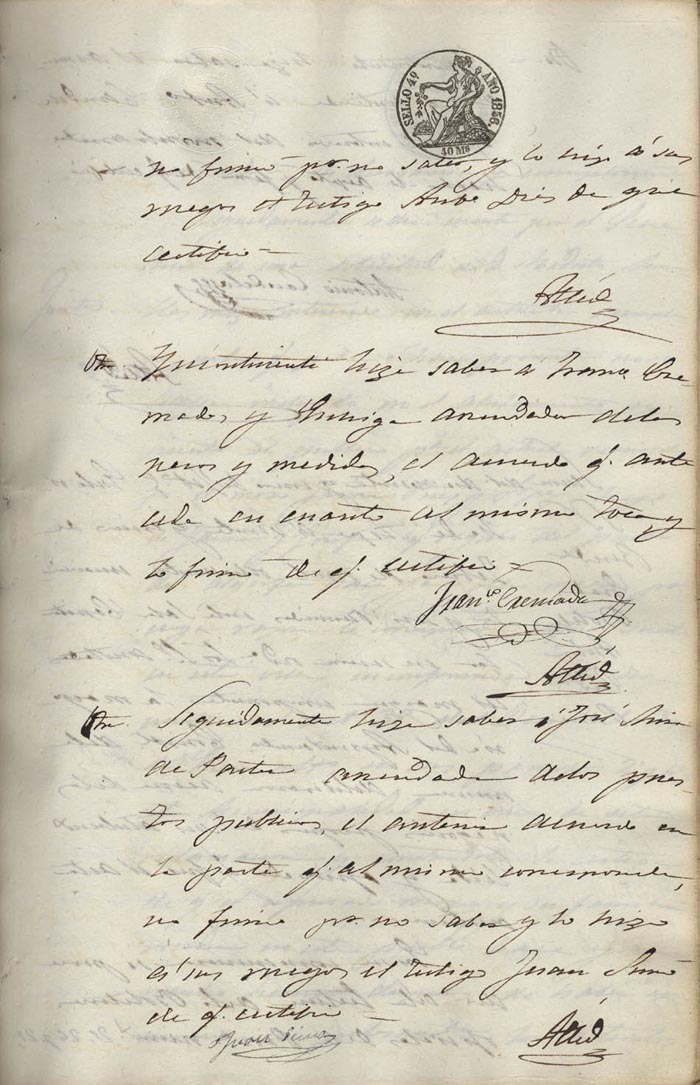 SELLO 4º AÑO 1856.
40 Ms
no firmó pr. no saber, y lo hizo á sus
ruegos el testigo de que
certifico =
Otra. Incontinenti hize saber a Franco. Cre
mades, y arrendador de los
pesos y medidas, el acuerdo q. ante
cede en cuanto al mismo toca, y
lo firmó de q. certifico =
Franco. Cremades
Otra. Seguidamente hize saber á José
de arrendador de los pues
tos publicos, el anterior acuerdo en
la parte q. al mismo corresponde,
no firmó pr. no saber y lo hizo
á sus ruegos el testigo Juan
de q. certifico =
Juan